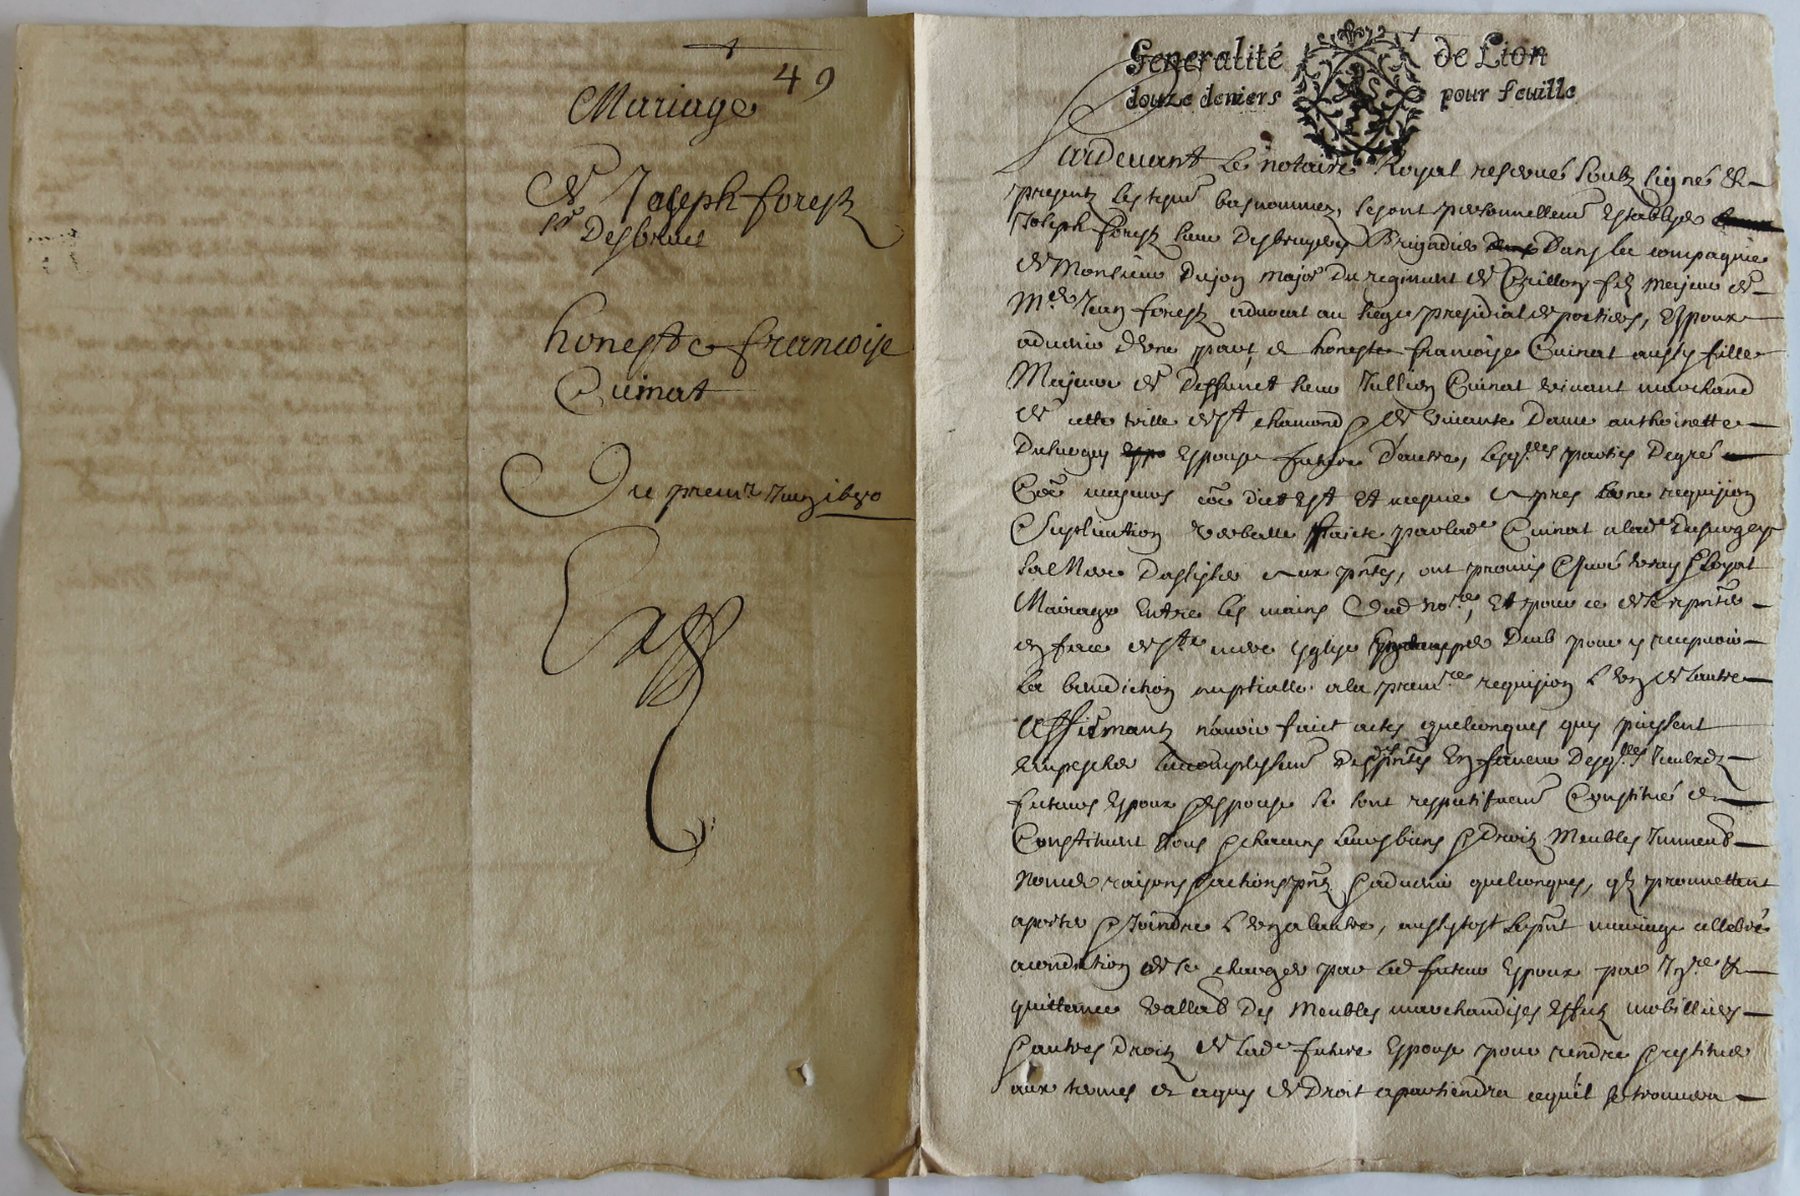 49
Mariage
de Joseph forest
sr Desbruie
honeste francoise
Cuinat
Du premr Juin 1690
Generalité de Lion
douze deniers pour feuille
Pardevant le notaire Royal reservé soubz signé &
presentz les tesms bas nommez, se sont personnellemt establys
Joseph forest sieur Desbruyeres Brigadier Dans la compagnie
de Monsieur Dujon major Du regiment de Crillon filz majeur de
Me Jean forest advocat au siege presidial de poictiers, Espoux
advenir d'une part, et honeste francoise Cuinat aussy fille
Majeure de Deffunct sieur Jullien Cuinat vivant marchand
de cette ville de St chamond & de vivante Dame anthoinette
Espouse future d'autre, lesqlles parties De gré
Comme majeurs come dict est Et mesme apres bonne requision
Suplication verballe faicte par lade Cuinat a lade
sa Mere D'assister aux pntes, ont promis & juré vray & loyal
Mariage Entre les mains dud nore, Et pour ce de se
en face de Ste mere Esglise pour y recepvoir
la benediction nuptialle a la premre requision l'un de l'autre
Affirmantz n'avoir faict actes quelconques quy puissent
empescher l'accomplissemt des pntes En faveur Desqlles Jceulxdz
futeurs Espoux & Espouse se sont respectifvemt Constitué et
Constituent tous & chacuns leurs biens & Droitz Meubles Jmmeub
noms raisons & actions pntz & advenir quelconques, qlz promettent
aporter & Joindre l'un a l'autre, aussytost le pnt mariage cellebré
a condition de se charger par led futeur Espoux par Jnre &
quittance vallab Des Meubles marchandises Effectz mobilliers
& autres Droitz de lade future Espouse pour rendre & restituer
aux termes et a quy de Droit apartiendra ce qu'il se trouvera